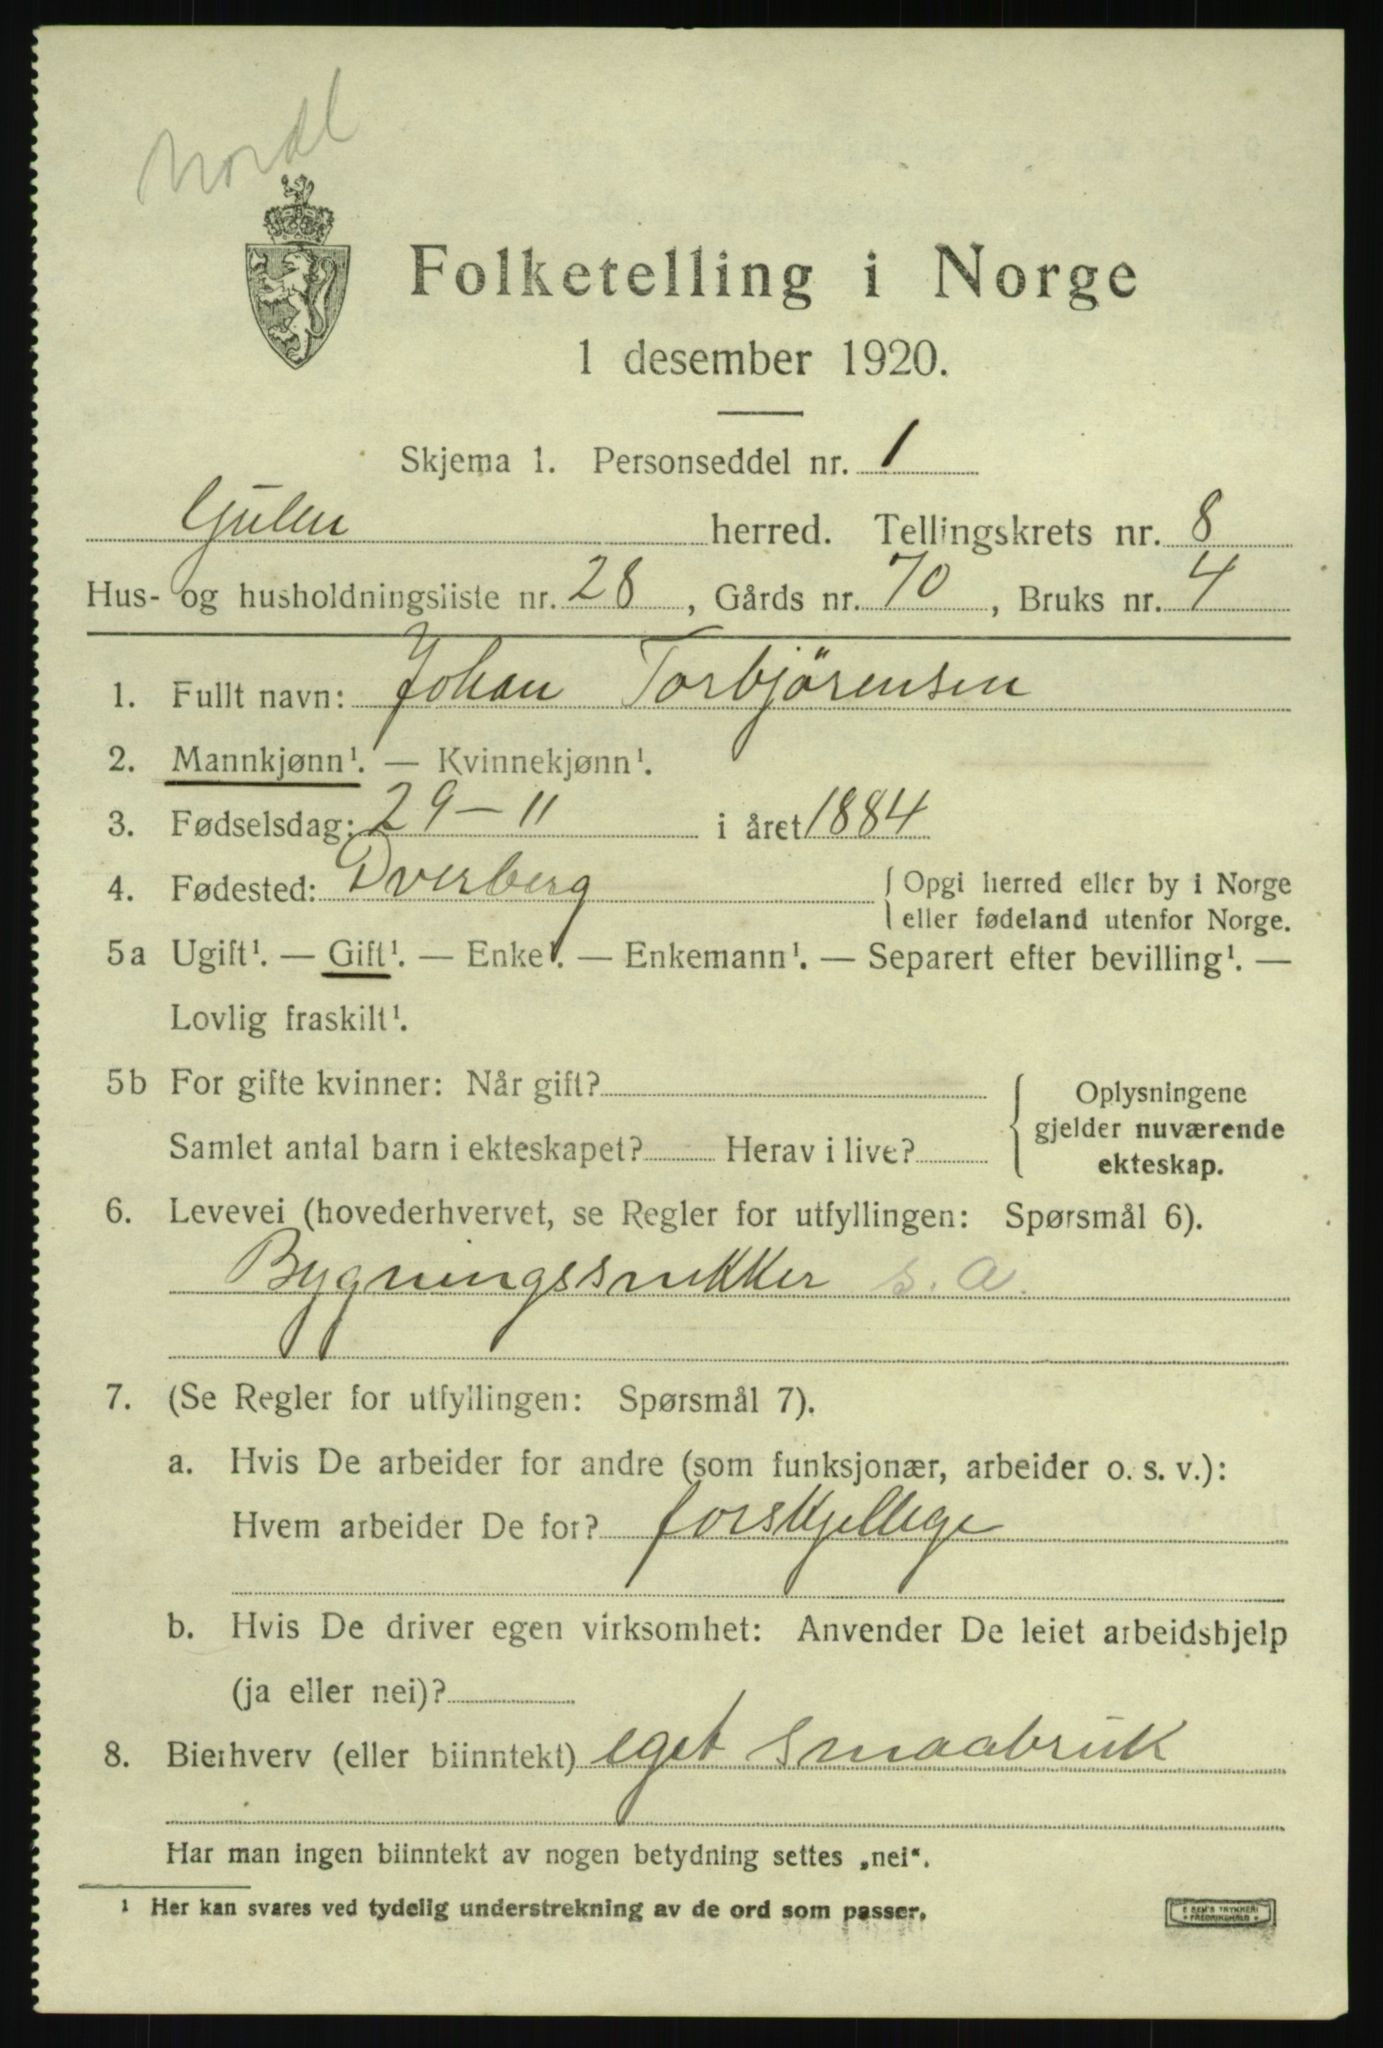 Nordl
Folketelling i Norge
1 desember 1920.
Skjema 1. Personseddel nr. 1
Gulen herred. Tellingskrets nr. 8
Hus- og husholdningsliste nr. 28, Gårds nr. 70, Bruks nr. 4
1. Fullt navn: Johan Torbjörensen
2. Mannkjønn¹. — Kvinnekjønn¹.
3. Fødselsdag: 29 – 11 i året 1884
4. Fødested: Dverberg { Opgi herred eller by i Norge
eller fødeland utenfor Norge.
5a Ugift¹. — Gift¹. — Enke¹. — Enkemann¹. — Separert efter bevilling¹. —
Lovlig fraskilt¹.
5b For gifte kvinner: Når gift? { Oplysningene
gjelder nuværende
Samlet antal barn i ekteskapet? Herav i live?
ekteskap.
6. Levevei (hovederhvervet, se Regler for utfyllingen: Spørsmål 6).
Bygningssnikker s. a.
7. (Se Regler for utfyllingen: Spørsmål 7).
a. Hvis De arbeider for andre (som funksjonær, arbeider o. s. v.):
Hvem arbeider De for? forskjellige
b. Hvis De driver egen virksomhet: Anvender De leiet arbeidshjelp
(ja eller nei)?
8. Bierhverv (eller biinntekt) eget smaabruk
Har man ingen biinntekt av nogen betydning settes „nei“.
¹ Her kan svares ved tydelig understrekning av de ord som passer.